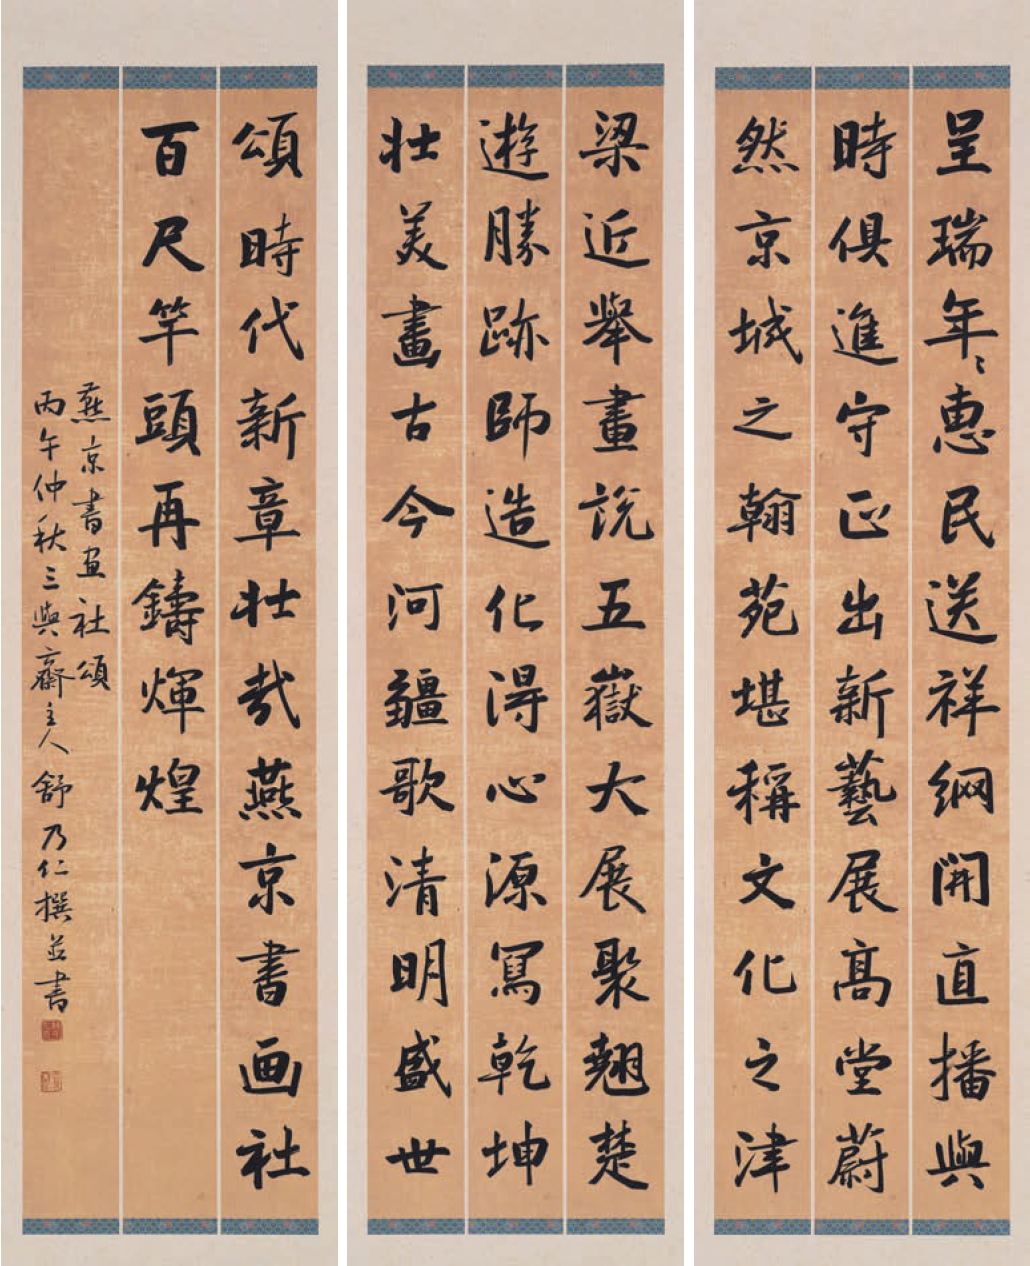 呈瑞年々惠民送祥網開直播與
時俱進守正出新藝展高堂蔚
然京城之翰苑堪稱文化之津
梁近舉畫說五嶽大展聚翹楚
遊勝跡師造化得心源寫乾坤
壯美畫古今河疆歌清明盛世
頌時代新章壯哉燕京書画社
百尺竿頭再鑄輝煌
燕京書画社頌
丙午仲秋三與齋主人舒乃仁撰並書